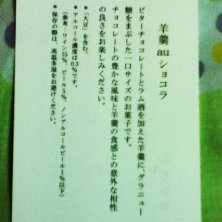 羊羹 au ショコラ
ビターチョコレートとラム酒を加えた羊羹に、グラニュー
糖をまぶした一口サイズのお菓子です。
チョコレートの豊かな風味と羊羹の食感との意外な相性
の良さをお楽しみください。
*「大豆」を含む。
*アルコール濃度は0.3%です。
(参考、ワイン15%、ビール5%、ノンアルコールビール1%以下)
*保存の際は、高温多湿をお避けください。